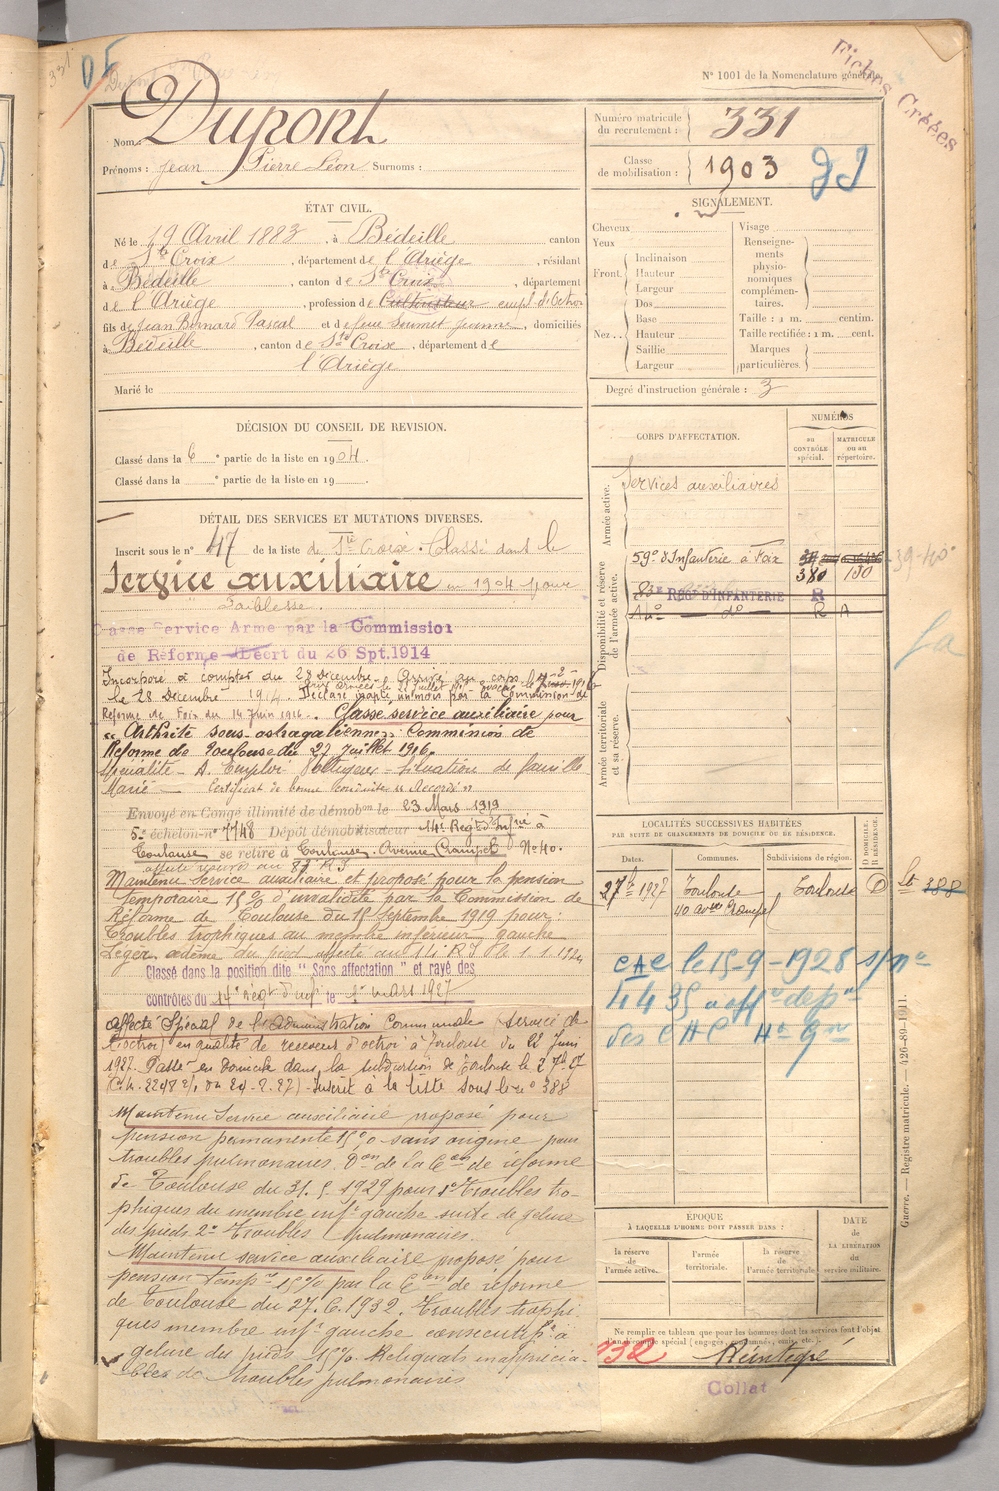 N° 1001 de la Nomenclature générale.
Fiches Créées
Nom : Dupont
Prénoms : Jean Pierre Léon Surnoms :
Numéro matricule du recrutement : 331
Classe de mobilisation : 1903
ÉTAT CIVIL.
Né le 19 Avril 1883, à Bédeille canton
de Ste Croix, département de l'Ariège, résidant
à Bédeille, canton de Ste Croix, département
de l'Ariège, profession de Cultivateur empl. d'Octroi
fils de Jean Bernard Pascal et de feue Soumet Jeanne, domiciliés
à Bédeille, canton de Ste Croix, département de
l'Ariège
Marié le
SIGNALEMENT.
Cheveux
Yeux
Front.
Inclinaison
Hauteur
Largeur
Nez..
Dos
Base
Hauteur
Saillie
Largeur
Visage
Renseignements physionomiques complémentaires.
Taille : 1 m. centim.
Taille rectifiée : 1 m. cent.
Marques particulières.
Degré d'instruction générale : 3
DÉCISION DU CONSEIL DE REVISION.
Classé dans la 6e partie de la liste en 1904.
Classé dans la e partie de la liste en 19
CORPS D'AFFECTATION.
NUMÉROS
au CONTRÔLE spécial.
MATRICULE ou au répertoire.
Armée active.
Services auxiliaires
Disponibilité et réserve de l'armée active.
59e d'Infanterie à Foix
380 130
39-40
83E REGT D'INFANTERIE R
14e do R A
Armée territoriale et sa réserve.
DÉTAIL DES SERVICES ET MUTATIONS DIVERSES.
Inscrit sous le n° 47 de la liste de Ste Croix. Classé dans le
Service auxiliaire en 1904 pour
Faiblesse.
Classé Service Armé par la Commission
de Réforme Décrt du 26 Spt. 1914
Incorporé à compter du 28 Décembre. Arrivé au corps
le 28 Décembre 1914. Déclaré inapte un mois par la Commission de
Réforme de Foix du 14 Juin 1916. Classé service auxiliaire pour
" Arthrite sous-astragalienne, Commission de
Réforme de Toulouse du 27 Juillet 1916.
Spécialité - A. Emploi Voltigeur - situation de famille
Marié - Certificat de bonne conduite " Accordé "
Envoyé en Congé illimité de démobon le 23 Mars 1919
5e échelon n° 7748 Dépôt démobilisateur 14e Regt d'Infrie à
Toulouse se retire à Toulouse. Avenue Crampel N° 40.
Maintenu Service auxiliaire et proposé pour la pension
temporaire 15 % d'invalidité par la Commission de
Réforme de Toulouse du 15 Septembre 1919 pour :
Troubles trophiques au membre inférieur gauche
Léger œdème du pied affecté au 14 R I le 1 1 1924
Classé dans la position dite " Sans affectation " et rayé des
contrôles du 14e régt d'inf le 1er mars 1927
Affecté Spécial de l'Administration Communale (service de
l'octroi) en qualité de receveur d'octroi à Toulouse du 22 Juin
1927. Passé en domicile dans la subdivsion de Toulouse le 27
Inscrit à la liste sous le n° 388
Maintenu Service auxiliaire proposé pour
pension permanente 15 % sans origine pour
troubles pulmonaires. Don de la Con de réforme
de Toulouse du 31. 5. 1929 pour 1° Troubles tro-
phiques du membre infr gauche suite de gelure
des pieds 2° Troubles pulmonaires.
Maintenu service auxiliaire proposé pour
pension tempre 15% par la Con de réforme
de Toulouse du 27. 6. 1932. Troubles trophi-
ques membre infr gauche consécutifs à
gelure des pieds 15%. Reliquats inapprécia-
bles de troubles pulmonaires
LOCALITÉS SUCCESSIVES HABITÉES
PAR SUITE DE CHANGEMENTS DE DOMICILE OU DE RÉSIDENCE.
Dates. Communes. Subdivisions de région. D. DOMICILE. R. RÉSIDENCE.
1927 Toulouse 40 avue Crampel Toulouse D
388
CAC le 15-9-1928
des CAC
ÉPOQUE
À LAQUELLE L'HOMME DOIT PASSER DANS :
la réserve de l'armée active.
l'armée territoriale.
la réserve de l'armée territoriale
DATE de LA LIBÉRATION du service militaire.
Ne remplir ce tableau que pour les hommes dont les services font l'objet
132
Réintégré
Collat
Guerre. — Registre matricule. — 426-89-1911.